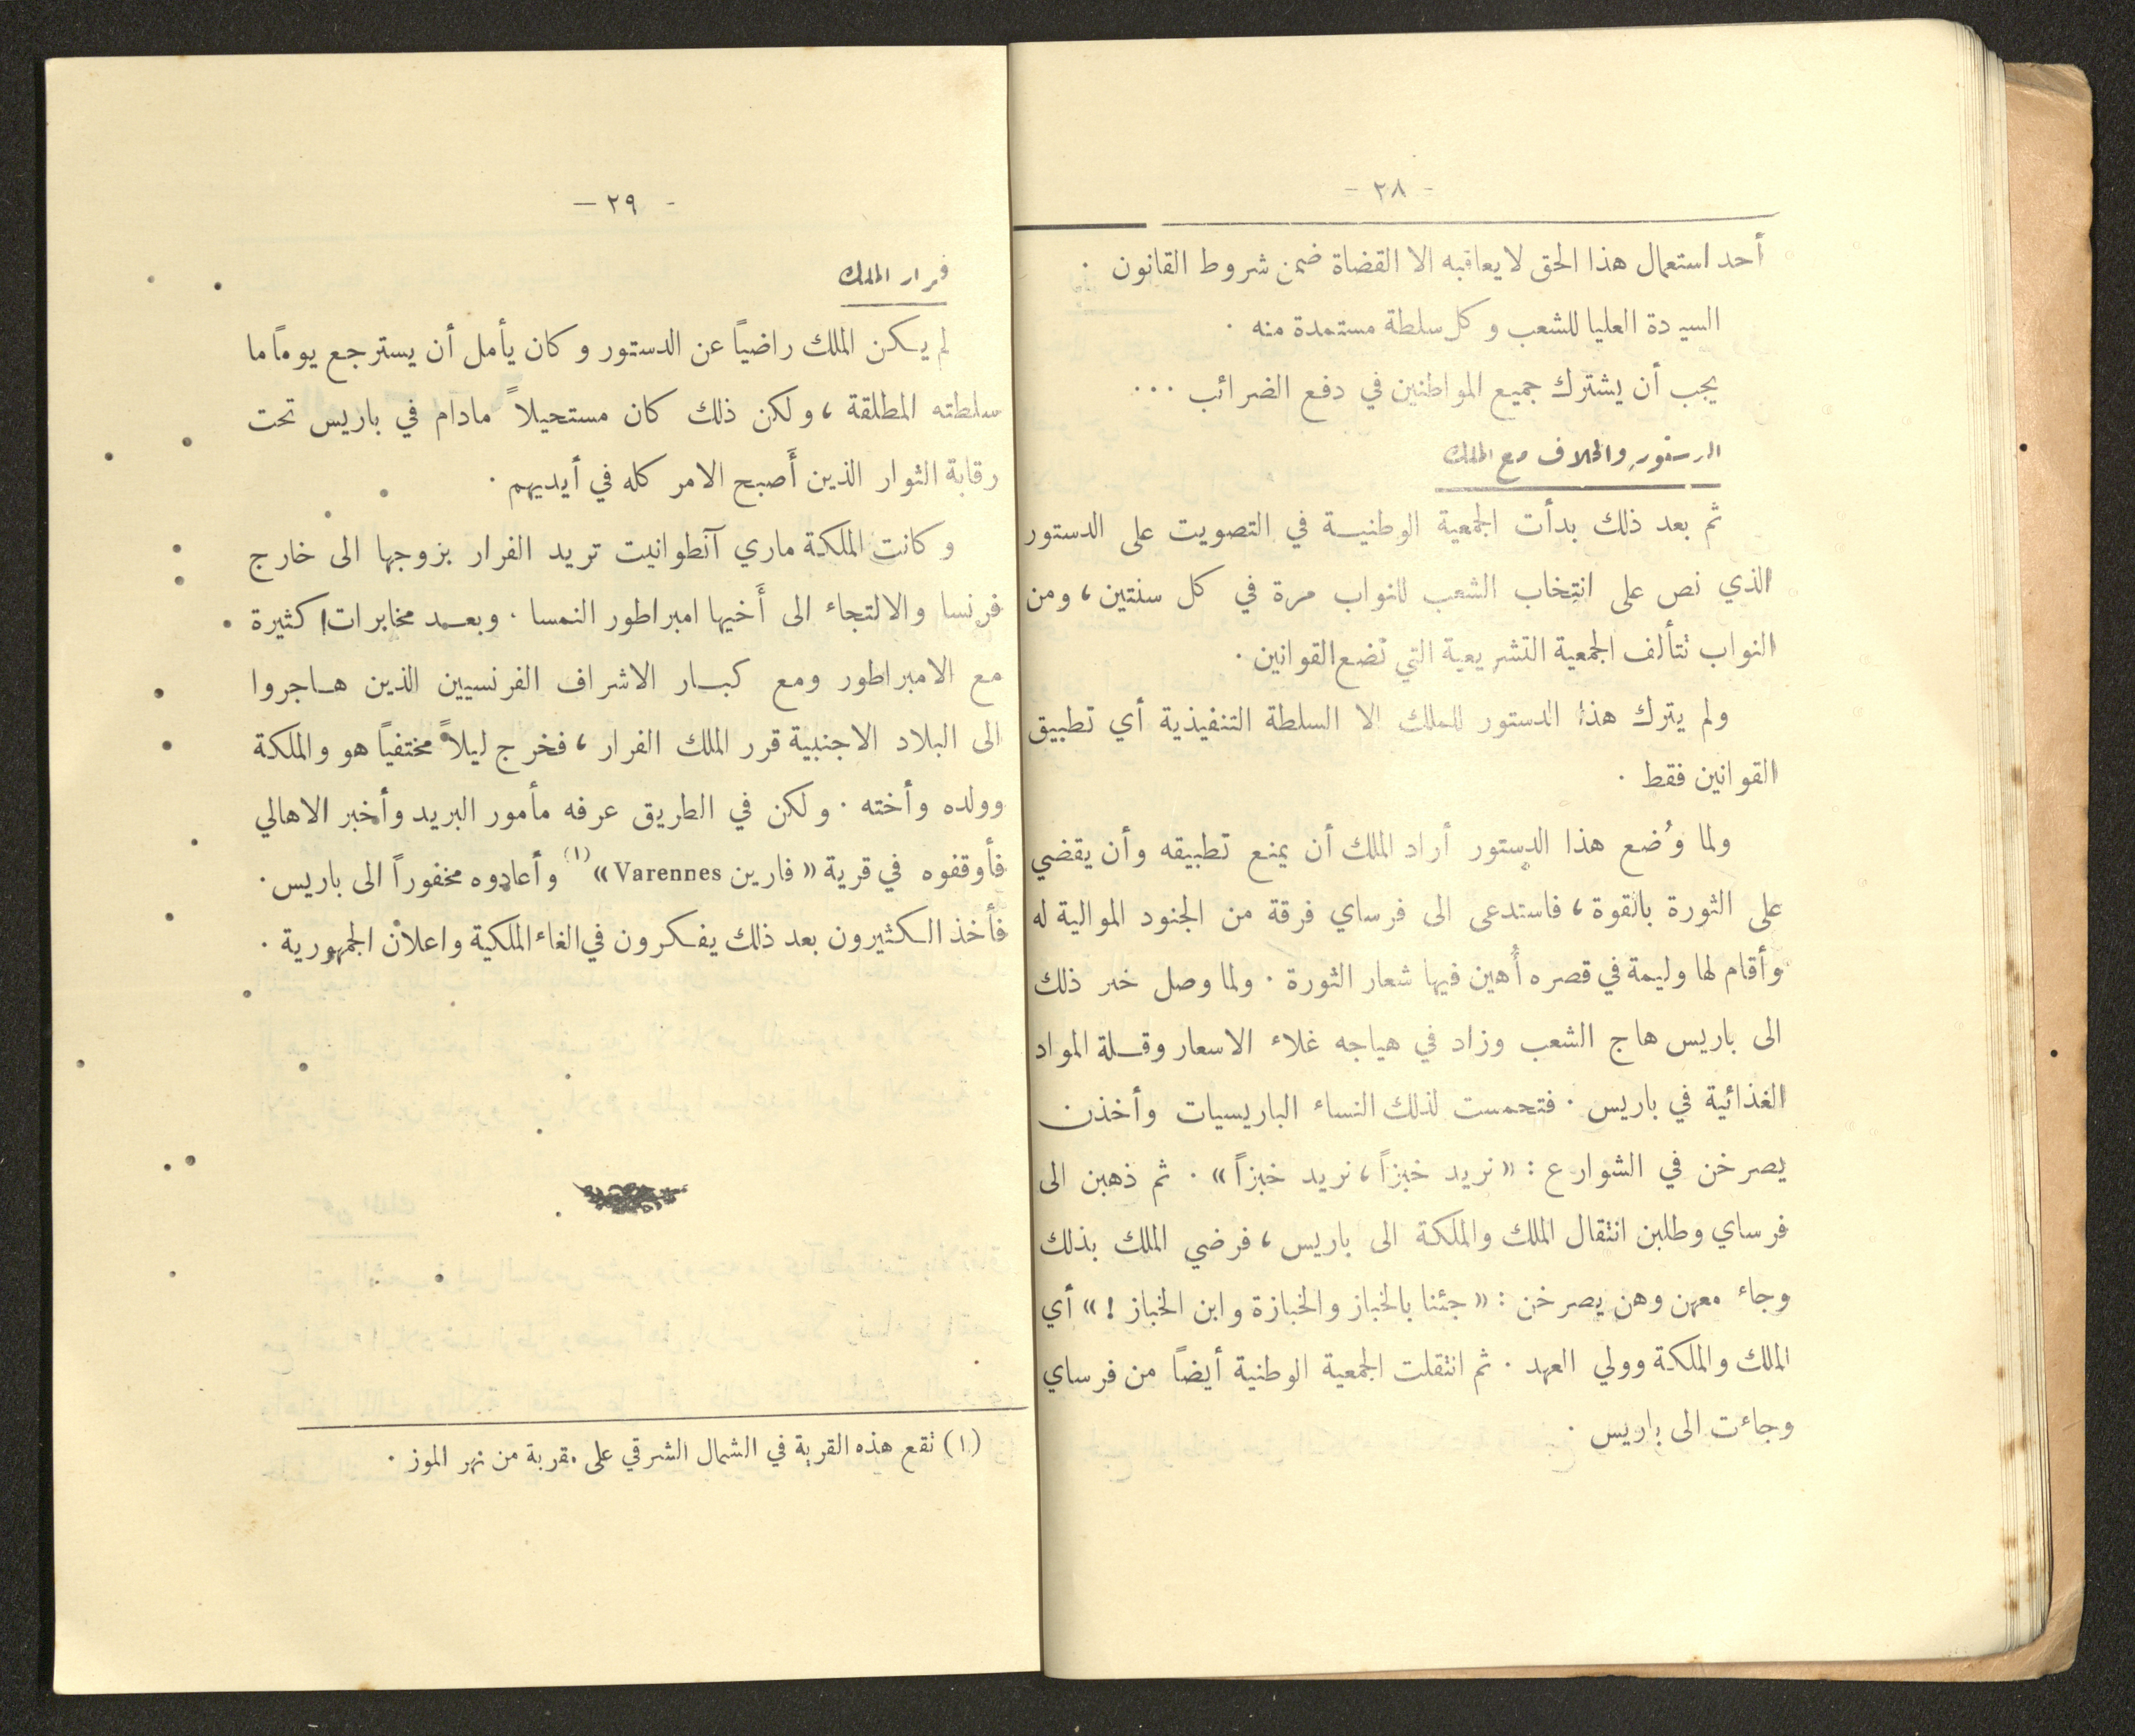 - ٢٨ -
أحد استعمال هذا الحق لا يعاقبه الا القضاة ضمن شروط القانون .
السيدة العليا للشعب وكل سلطة مستمدة منه .
يجب أن يشترك جميع المواطنين في دفع الضرائب ...
الدستور والخلاف مع الملك
ثم بعد ذلك بدأت الجمعية الوطنية في التصويت على الدستور
الذي نص على انتخاب الشعب للنواب مرة في كل سنتين ، ومن
النواب تتألف الجمعية التشريعية التي تضع القوانين .
ولم يترك هذا الدستور للملك الا السلطة التنفيذية أي تطبيق
القوانين فقط .
ولما وُضع هذا الدستور أراد الملك أن يمنع تطبيقه وأن يقضي
على الثورة بالقوة ، فاستدعى الى فرساي فرقة من الجنود الموالية له
وأقام لها وليمة في قصره أُهين فيها شعار الثورة . ولما وصل خبر ذلك
الى باريس هاج الشعب وزاد في هياجه غلاء الاسعار وقلة المواد
الغذائية في باريس . فتحمست لذلك النساء الباريسيات وأخذن
يصرخن في الشوارع : « نريد خبزاً ، نريد خبزاً » . ثم ذهبن الى
فرساي وطلبن انتقال الملك والملكة الى باريس ، فرضي الملك بذلك
وجاء معهن وهن يصرخن : « جئنا بالخباز والخبازة وابن الخباز ! » أي
الملك والملكة وولي العهد . ثم انتقلت الجمعية الوطنية أيضاً من فرساي
وجاءت الى باريس .
- ٢٩ -
فرار الملك
لم يكن الملك راضياً عن الدستور وكان يأمل أن يسترجع يوماً ما
سلطته المطلقة ، ولكن ذلك كان مستحيلاً مادام في باريس تحت
رقابة الثوار الذين أَصبح الامر كله في أيديهم .
وكانت الملكة ماري آنطوانيت تريد الفرار بزوجها الى خارج
فرنسا والالتجاء الى أَخيها امبراطور النمسا . وبعد مخابرات كثيرة
مع الامبراطور ومع كبار الاشراف الفرنسيين الذين هاجروا
الى البلاد الاجنبية قرر الملك الفرار ، فخرج ليلاً مختفياً هو والملكة
وولده وأخته . ولكن في الطريق عرفه مأمور البريد وأخبر الاهالي
فأوقفوه في قرية « فارين Varennes » (١) وأعادوه مخفوراً الى باريس .
فأخذ الكثيرون بعد ذلك يفكرون في الغاء الملكية واعلان الجمهورية .
(١) تقع هذه القرية في الشمال الشرقي على مقربة من نهر الموز .